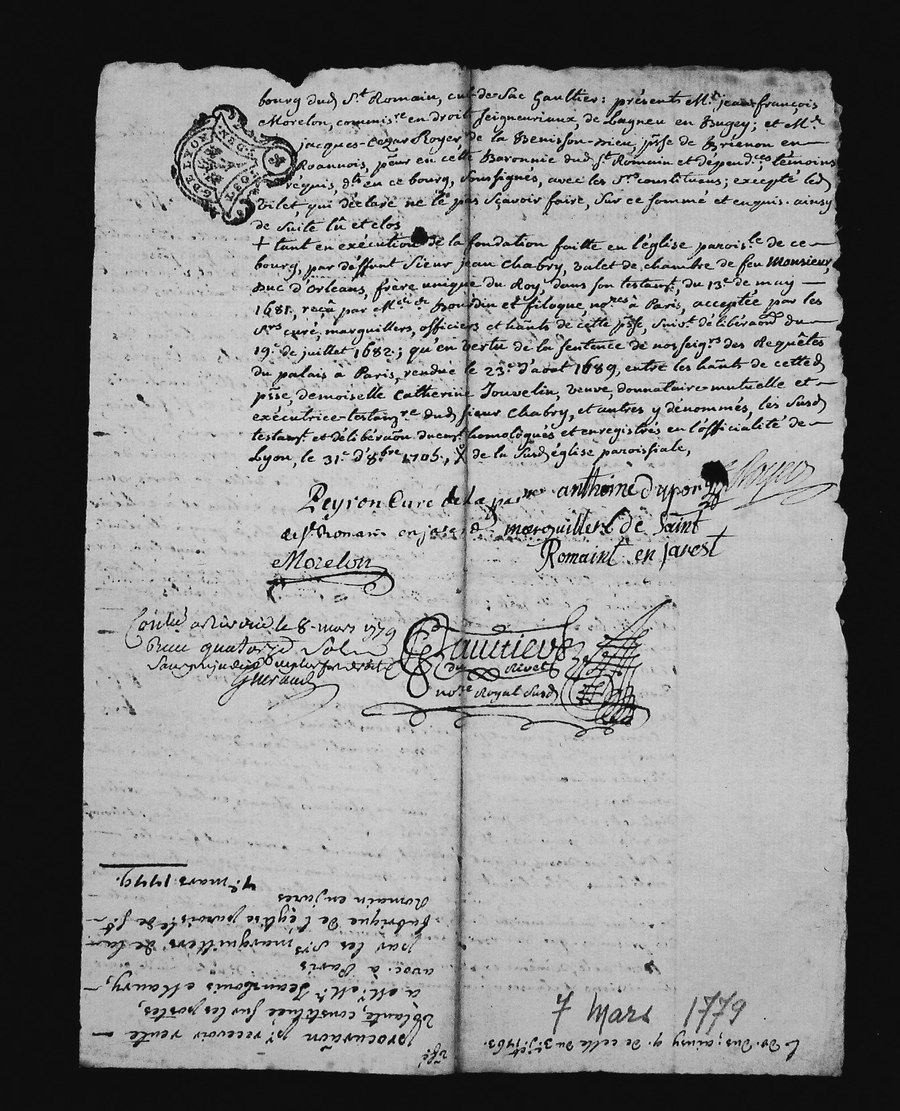 bourg dud. St. Romain, cul de sac Gaultier: présents Mr. jean françois
Morelon, commisre en droits seigneuriaux, de Lagneu en Bugey; et Mr.
jacques-César Royer, de la Benisson-dieu, psse de Brienon en
Roannois, en cette Baronnie dud. St. Romain et dépendces, témoins
requis, dts en ce bourg, soussignés, avec les Srs constituans; excepté led.
Vilet, qui déclare ne le pas sçavoir faire, sur ce sommé et enquis. ainsy
de suite lû et clos
+ tant en exécution de la fondation faitte en l'église paroisle de ce
bourg, par déffunt Sieur jean Chabry, valet de chambre de feu Monsieur,
Duc d'Orleans, frère unique du Roy, dans son testamt. du 13e de may
1681, reçû par Bourdin et filoque, nores à Paris, acceptée par les
Srs curé, marguillers, officiers et habants de cette psse, suivt. délibéraõn du
19e de juillet 1682; qu'en vertu de la sentence de nosseigrs des Requêtes
du palais à Paris, rendue le 23e d'aout 1689, entre les habants de cetted.
psse, demoiselle Catherine Jouvelin, veuve, donnataire mutuelle et
exécutrice-testamre dud. Sieur Chabry, et autres y dénommés, les susd.
testamt. et délibéraõn ducemt. homologués et enregistrés en l'officialité de
Lyon, le 31e d'8bre 1705., X de la susd. église paroissiale,
Peyron Curé de la anthoine dupor Royer
de St. Romain en jarest marguillers de Saint
Morelon Romaint en jarest
Conlé a Riverie le 8 mars 1779
Reçu quatorze sols
Sans préjudice
Gueraud
Gaultier
du Rivet
nore Royal susd.
G. DE LYON
procuraõn pr. recevoir rente
volante, constituée sur les postes,
a Me. Mr. Jean Louis Maury,
avoc. à Paris
par les Srs marguillers de la
fabrique de l'église paroisle de St.
Romain en jares
7e. mars 1779.
7 Mars 1779